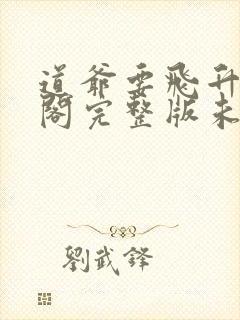 道爺要飛升
閣完整版未
劉武鋒